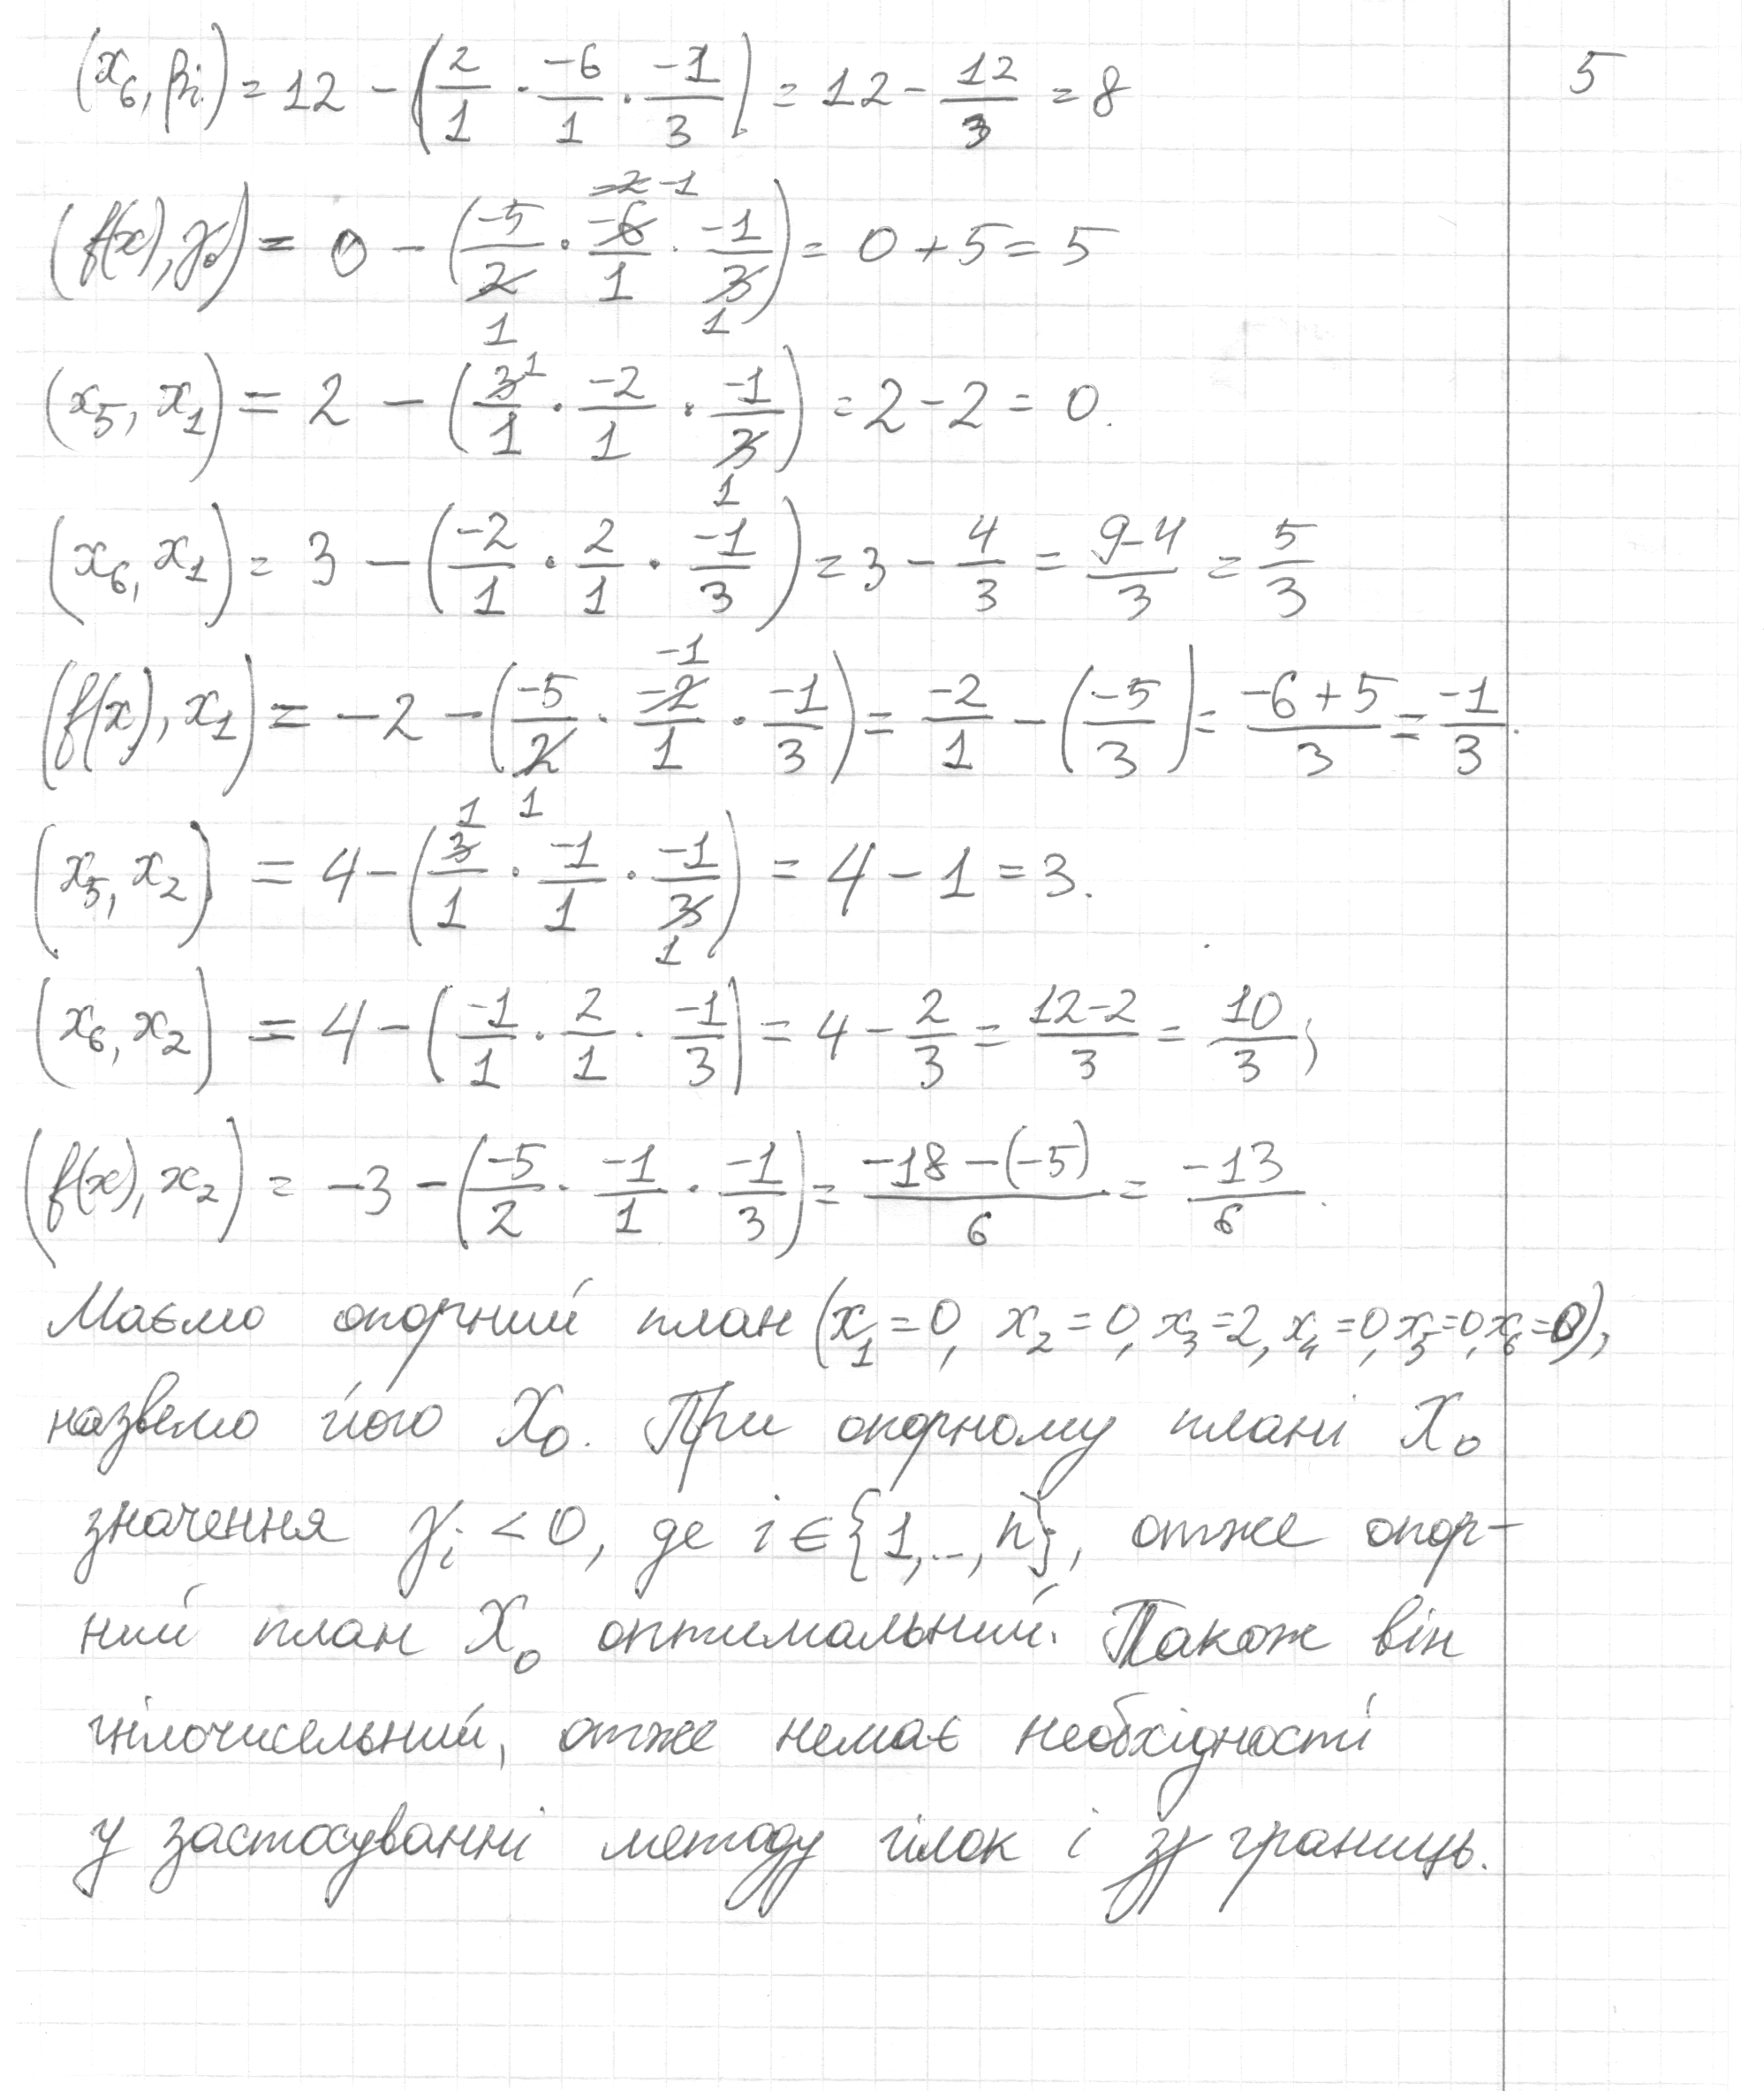 (x₆, βᵢ) = 12 - (2/1 · -6/1 · -1/3) = 12 - 12/3 = 8
5
(f(x), γ₀) = 0 - (-5/2 · -6/1 · -1/3) = 0 + 5 = 5
(x₅, x₁) = 2 - (3/1 · -2/1 · -1/3) = 2 - 2 = 0.
(x₆, x₁) = 3 - (-2/1 · 2/1 · -1/3) = 3 - 4/3 = 9-4/3 = 5/3
(f(x), x₁) = -2 - (-5/2 · -2/1 · -1/3) = -2/1 - (-5/3) = -6+5/3 = -1/3.
(x₅, x₂) = 4 - (3/1 · -1/1 · -1/3) = 4 - 1 = 3.
(x₆, x₂) = 4 - (-1/1 · 2/1 · -1/3) = 4 - 2/3 = 12-2/3 = 10/3;
(f(x), x₂) = -3 - (-5/2 · -1/1 · -1/3) = -18-(-5)/6 = -13/6.
Маємо опорний план (x₁=0, x₂=0, x₃=2, x₄=0, x₅=0, x₆=0),
назвемо його X₀. При опорному плані X₀
значення γᵢ < 0, де i ∈ {1,..., n}, отже опор-
ний план X₀ оптимальний. Також він
цілочисельний, отже немає необхідності
у застосуванні методу гілок і границь.